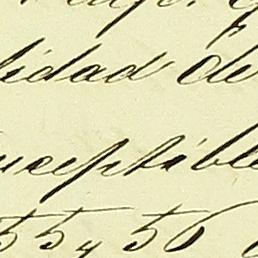 lidad de
uceptible
55 y 56